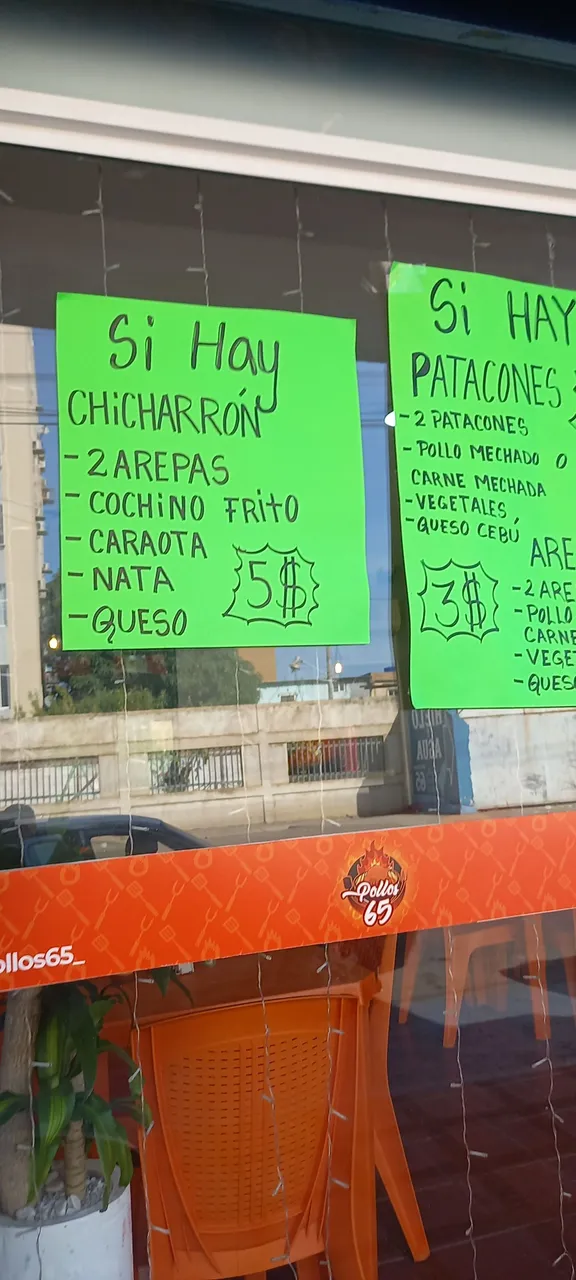 Si Hay
CHiCHARRÓN
- 2 AREPAS
- COCHiNO FRitO
- CARAOTA
- NATA
- QUESO
5$
Si HAY
PATACONES
- 2 PATACONES
- POLLO MECHADO O
CARNE MECHADA
- VEGETALES
- QUESO CEBÚ
3$
ARE
- 2 ARE
- POLLO
CARNE
- VEGE
- QUES
HIELO
AGUA
65
Pollos
65
ollos65_